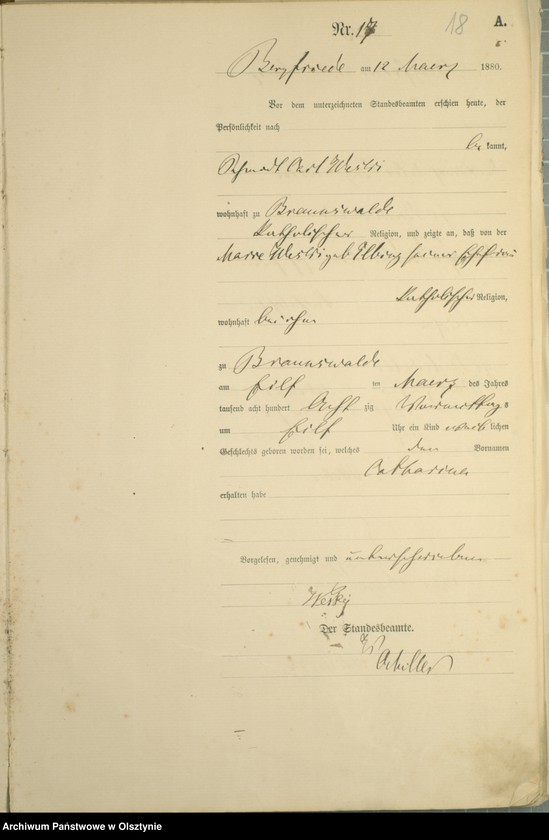 18 A.
Nr. 17
Bergfriede am 12 Maerz 1880.
Vor dem unterzeichneten Standesbeamten erschien heute, der
Persönlichkeit nach
be kannt,
Carl
wohnhaft zu Braunswalde
katholischer Religion, und zeigte an, daß von der
geb Elbing seiner Ehefrau
katholischer Religion,
wohnhaft bei ihm
zu Braunswalde
am eilf ten Maerz des Jahres
tausend acht hundert Acht zig Vormittags
um eilf Uhr ein Kind weib lichen
Geschlechts geboren worden sei, welches den Vornamen
Catharina
erhalten habe
Vorgelesen, genehmigt und unterschrieben
Der Standesbeamte.
Archiwum Państwowe w Olsztynie